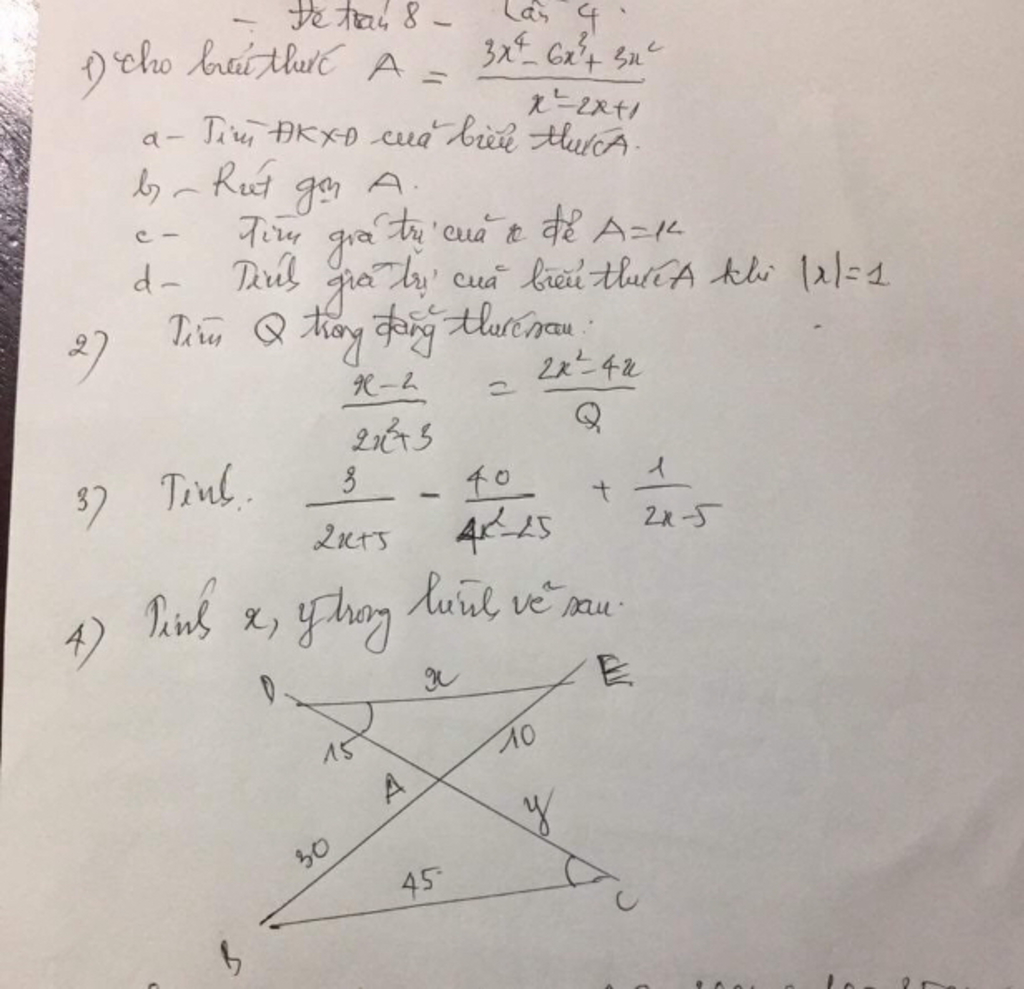 - Đề toán 8 - Lần 4.
1) Cho biểu thức A = (3x⁴ - 6x³ + 3x²) / (x² - 2x + 1)
a - Tìm ĐKXĐ của biểu thức A.
b - Rút gọn A.
c - Tìm giá trị của x để A = 12
d - Tính giá trị của biểu thức A khi |x| = 1
2) Tìm Q trong đẳng thức sau:
(x - 2) / (2x² + 3) = (2x² - 4x) / Q
3) Tính. 3 / (2x + 5) - 40 / (4x² - 25) + 1 / (2x - 5)
4) Tính x, y trong hình vẽ sau.
D x E
15 10
A
y
30
45
C
B